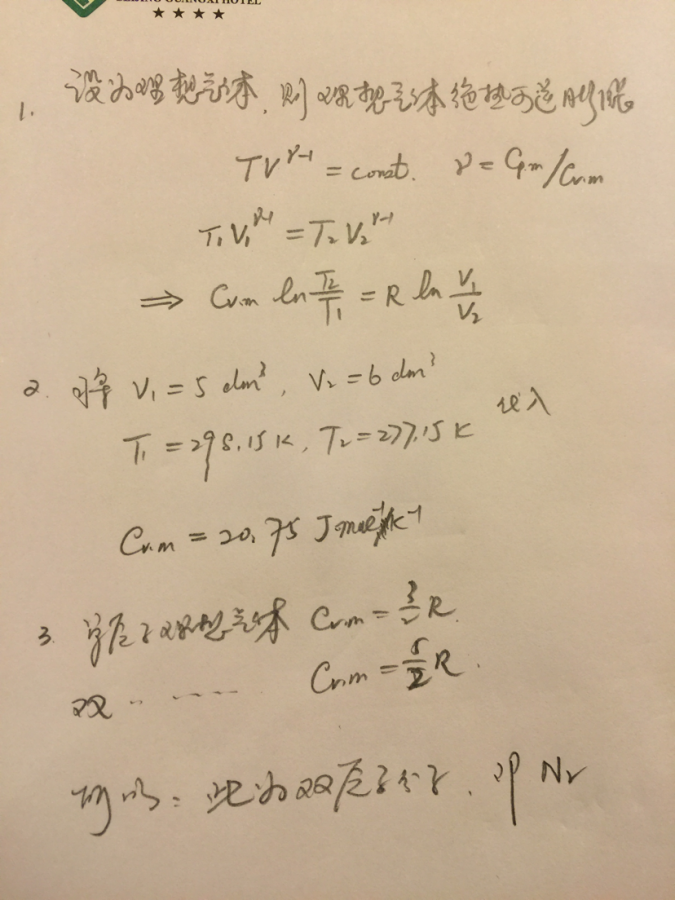 GUANGXI HOTEL
★★★★
1. 设为理想气体,则理想气体绝热可逆膨胀
TV^γ-1 = const. γ = Cp.m/Cv.m
T₁V₁^γ-1 = T₂V₂^γ-1
⇒ Cv.m ln T₂/T₁ = R ln V₁/V₂
2. 将 V₁ = 5 dm³, V₂ = 6 dm³
T₁ = 298.15 K, T₂ = 277.15 K 代入
Cv.m = 20.75 J mol⁻¹ K⁻¹
3. 单原子理想气体 Cv.m = 3/2 R.
双 ‥ ---- Cv.m = 5/2 R.
所以: 此为双原子分子, 即 N₂